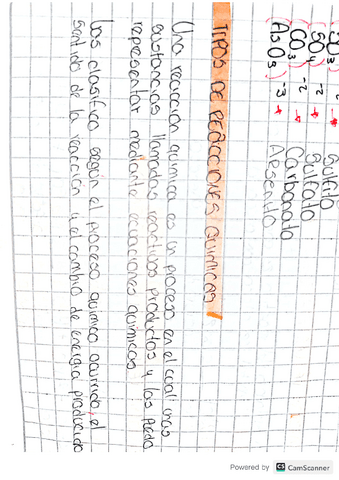 SO₃ ⁻² Sulfito
SO₄ ⁻² * Sulfato
CO₃ ⁻² * Carbonato
AsO₃ ⁻³ * Arsenito
TIPOS DE REACCIONES QUIMICAS
Una reacción quimica es un proceso en el cual unas
sustancias llamadas reactivos productos y las puedo
representar mediante ecuaciones quimicas
Las clasifico según el proceso quimico ocurrido, el
sentido de la reacción y el cambio de energia producido
Powered by CS CamScanner